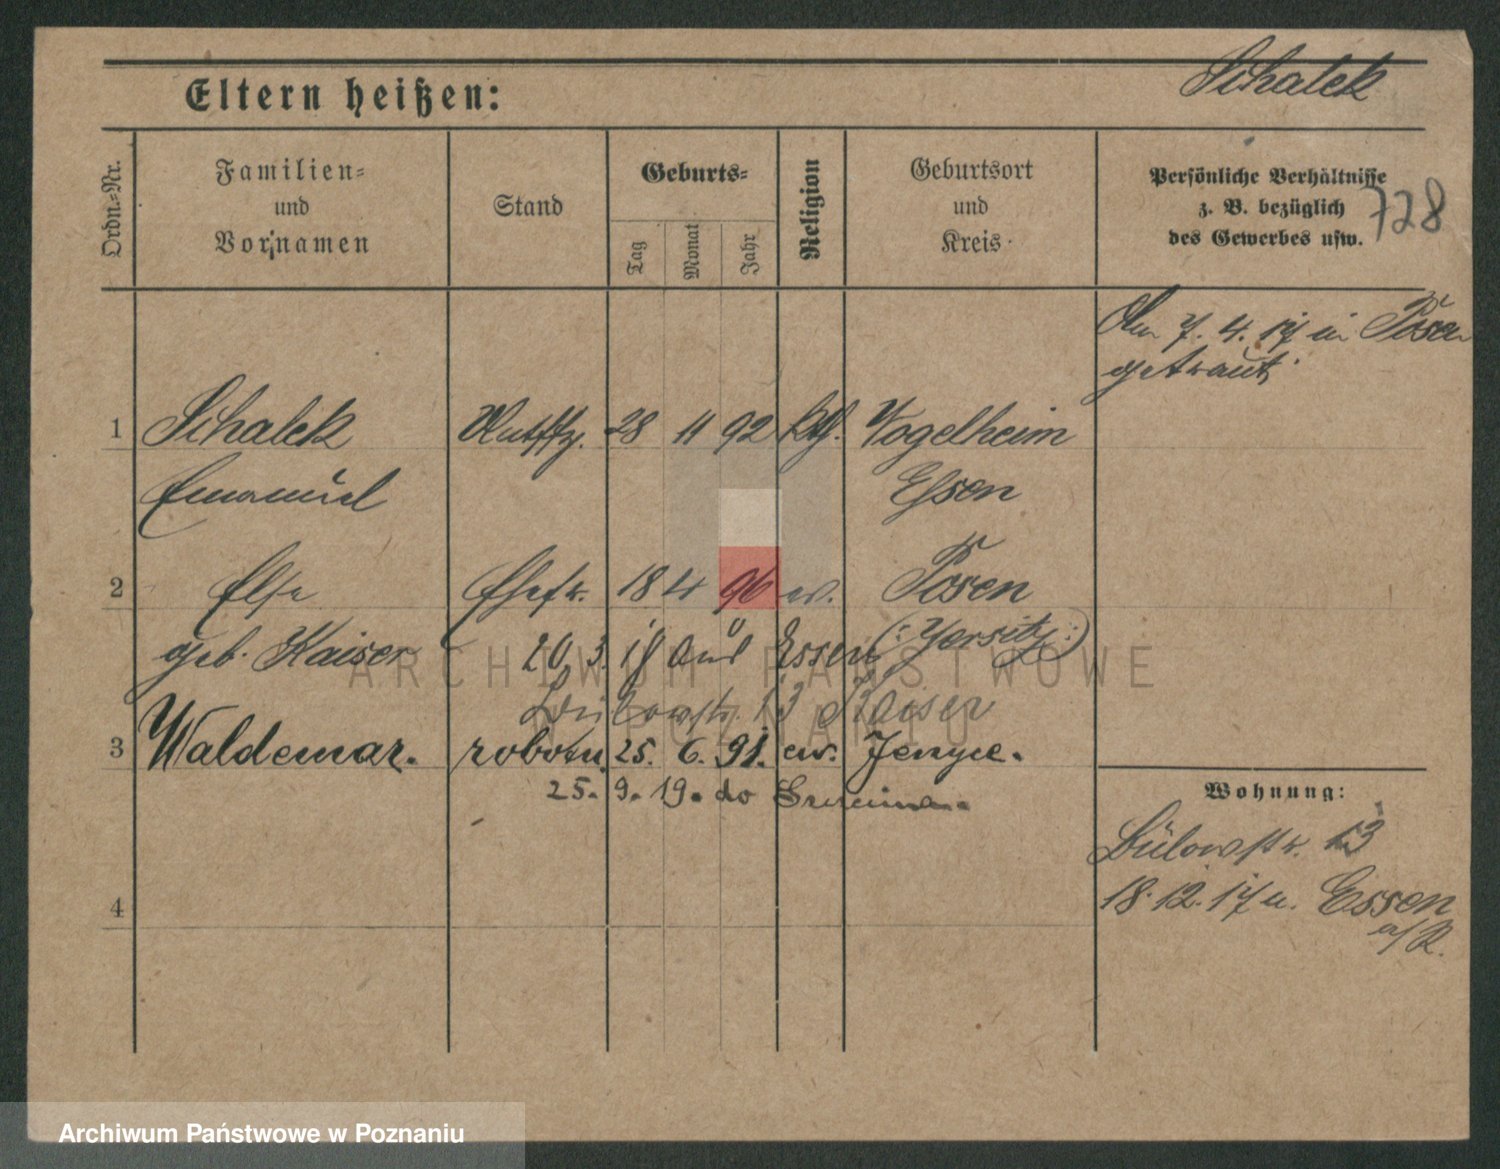 Schalek
Eltern heißen:
Ordn.-Nr.
Familien-
und
Vornamen
Stand
Geburts-
Tag
Monat
Jahr
Religion
Geburtsort
und
Kreis
Persönliche Verhältnisse
z. B. bezüglich
des Gewerbes usw.
728
Am 7. 4. 17 in Posen
getraut
1 Schalek 28 11 92 kth. Vogelheim
Emanuel Essen
2 Else Ehefr. 18 4 96 ev. Posen
geb. Kaiser 20. 3. 18 aus Essen (: Jersitz :)
Bülowstr. 13 Kaiser
3 Waldemar. robotn. 25. 6. 91. ew.
25. 9. 19. do
Wohnung:
Bülowstr. 13
18. 12. 17 n. Essen
a/R.
4
ARCHIWUM PAŃSTWOWE
W POZNANIU
Archiwum Państwowe w Poznaniu